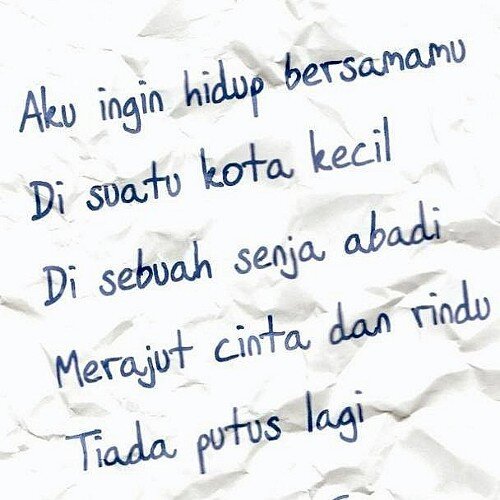 Aku ingin hidup bersamamu
Di suatu kota kecil
Di sebuah senja abadi
Merajut cinta dan rindu
Tiada putus lagi